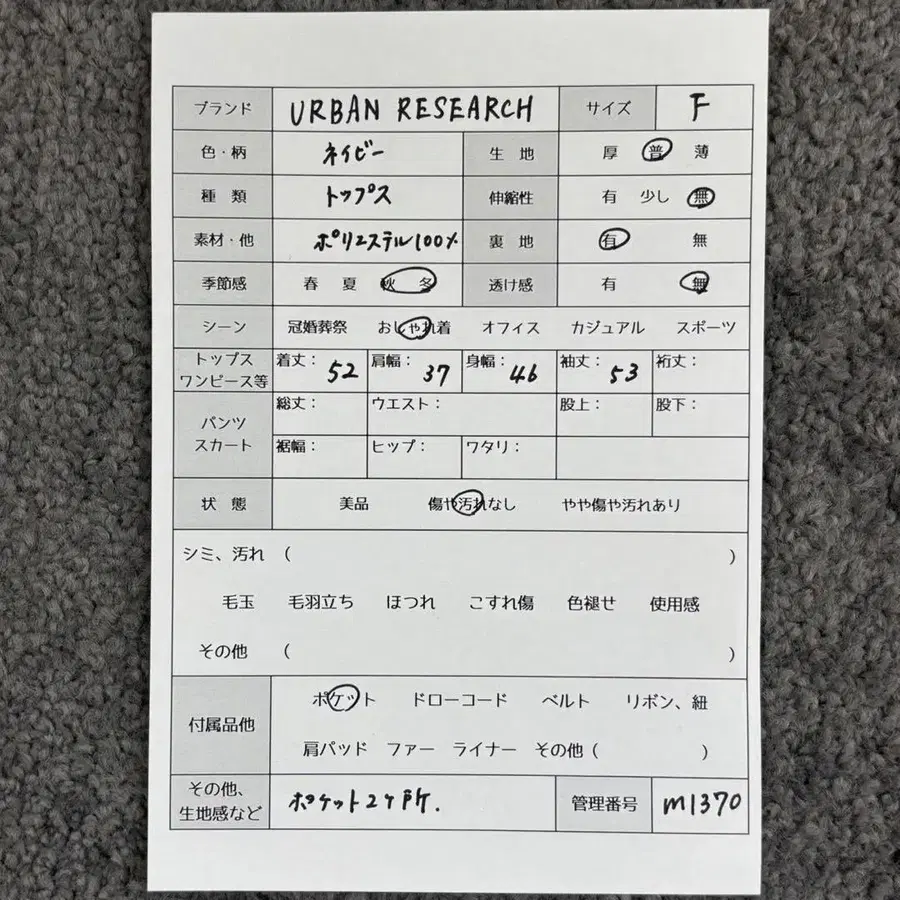 ブランド URBAN RESEARCH サイズ F
色・柄 ネイビー 生 地 厚 普 薄
種 類 トップス 伸縮性 有 少し 無
素材・他 ポリエステル100% 裏 地 有 無
季節感 春 夏 秋 冬 透け感 有 無
シーン 冠婚葬祭 おしゃれ着 オフィス カジュアル スポーツ
トップス
ワンピース等 着丈: 52 肩幅: 37 身幅: 46 袖丈: 53 裄丈:
パンツ
スカート 総丈: ウエスト: 股上: 股下:
裾幅: ヒップ: ワタリ:
状 態 美品 傷や汚れなし やや傷や汚れあり
シミ、汚れ ( )
毛玉 毛羽立ち ほつれ こすれ傷 色褪せ 使用感
その他 ( )
付属品他 ポケット ドローコード ベルト リボン、紐
肩パッド ファー ライナー その他 ( )
その他、
生地感など ポケット2ケ所. 管理番号 m1370